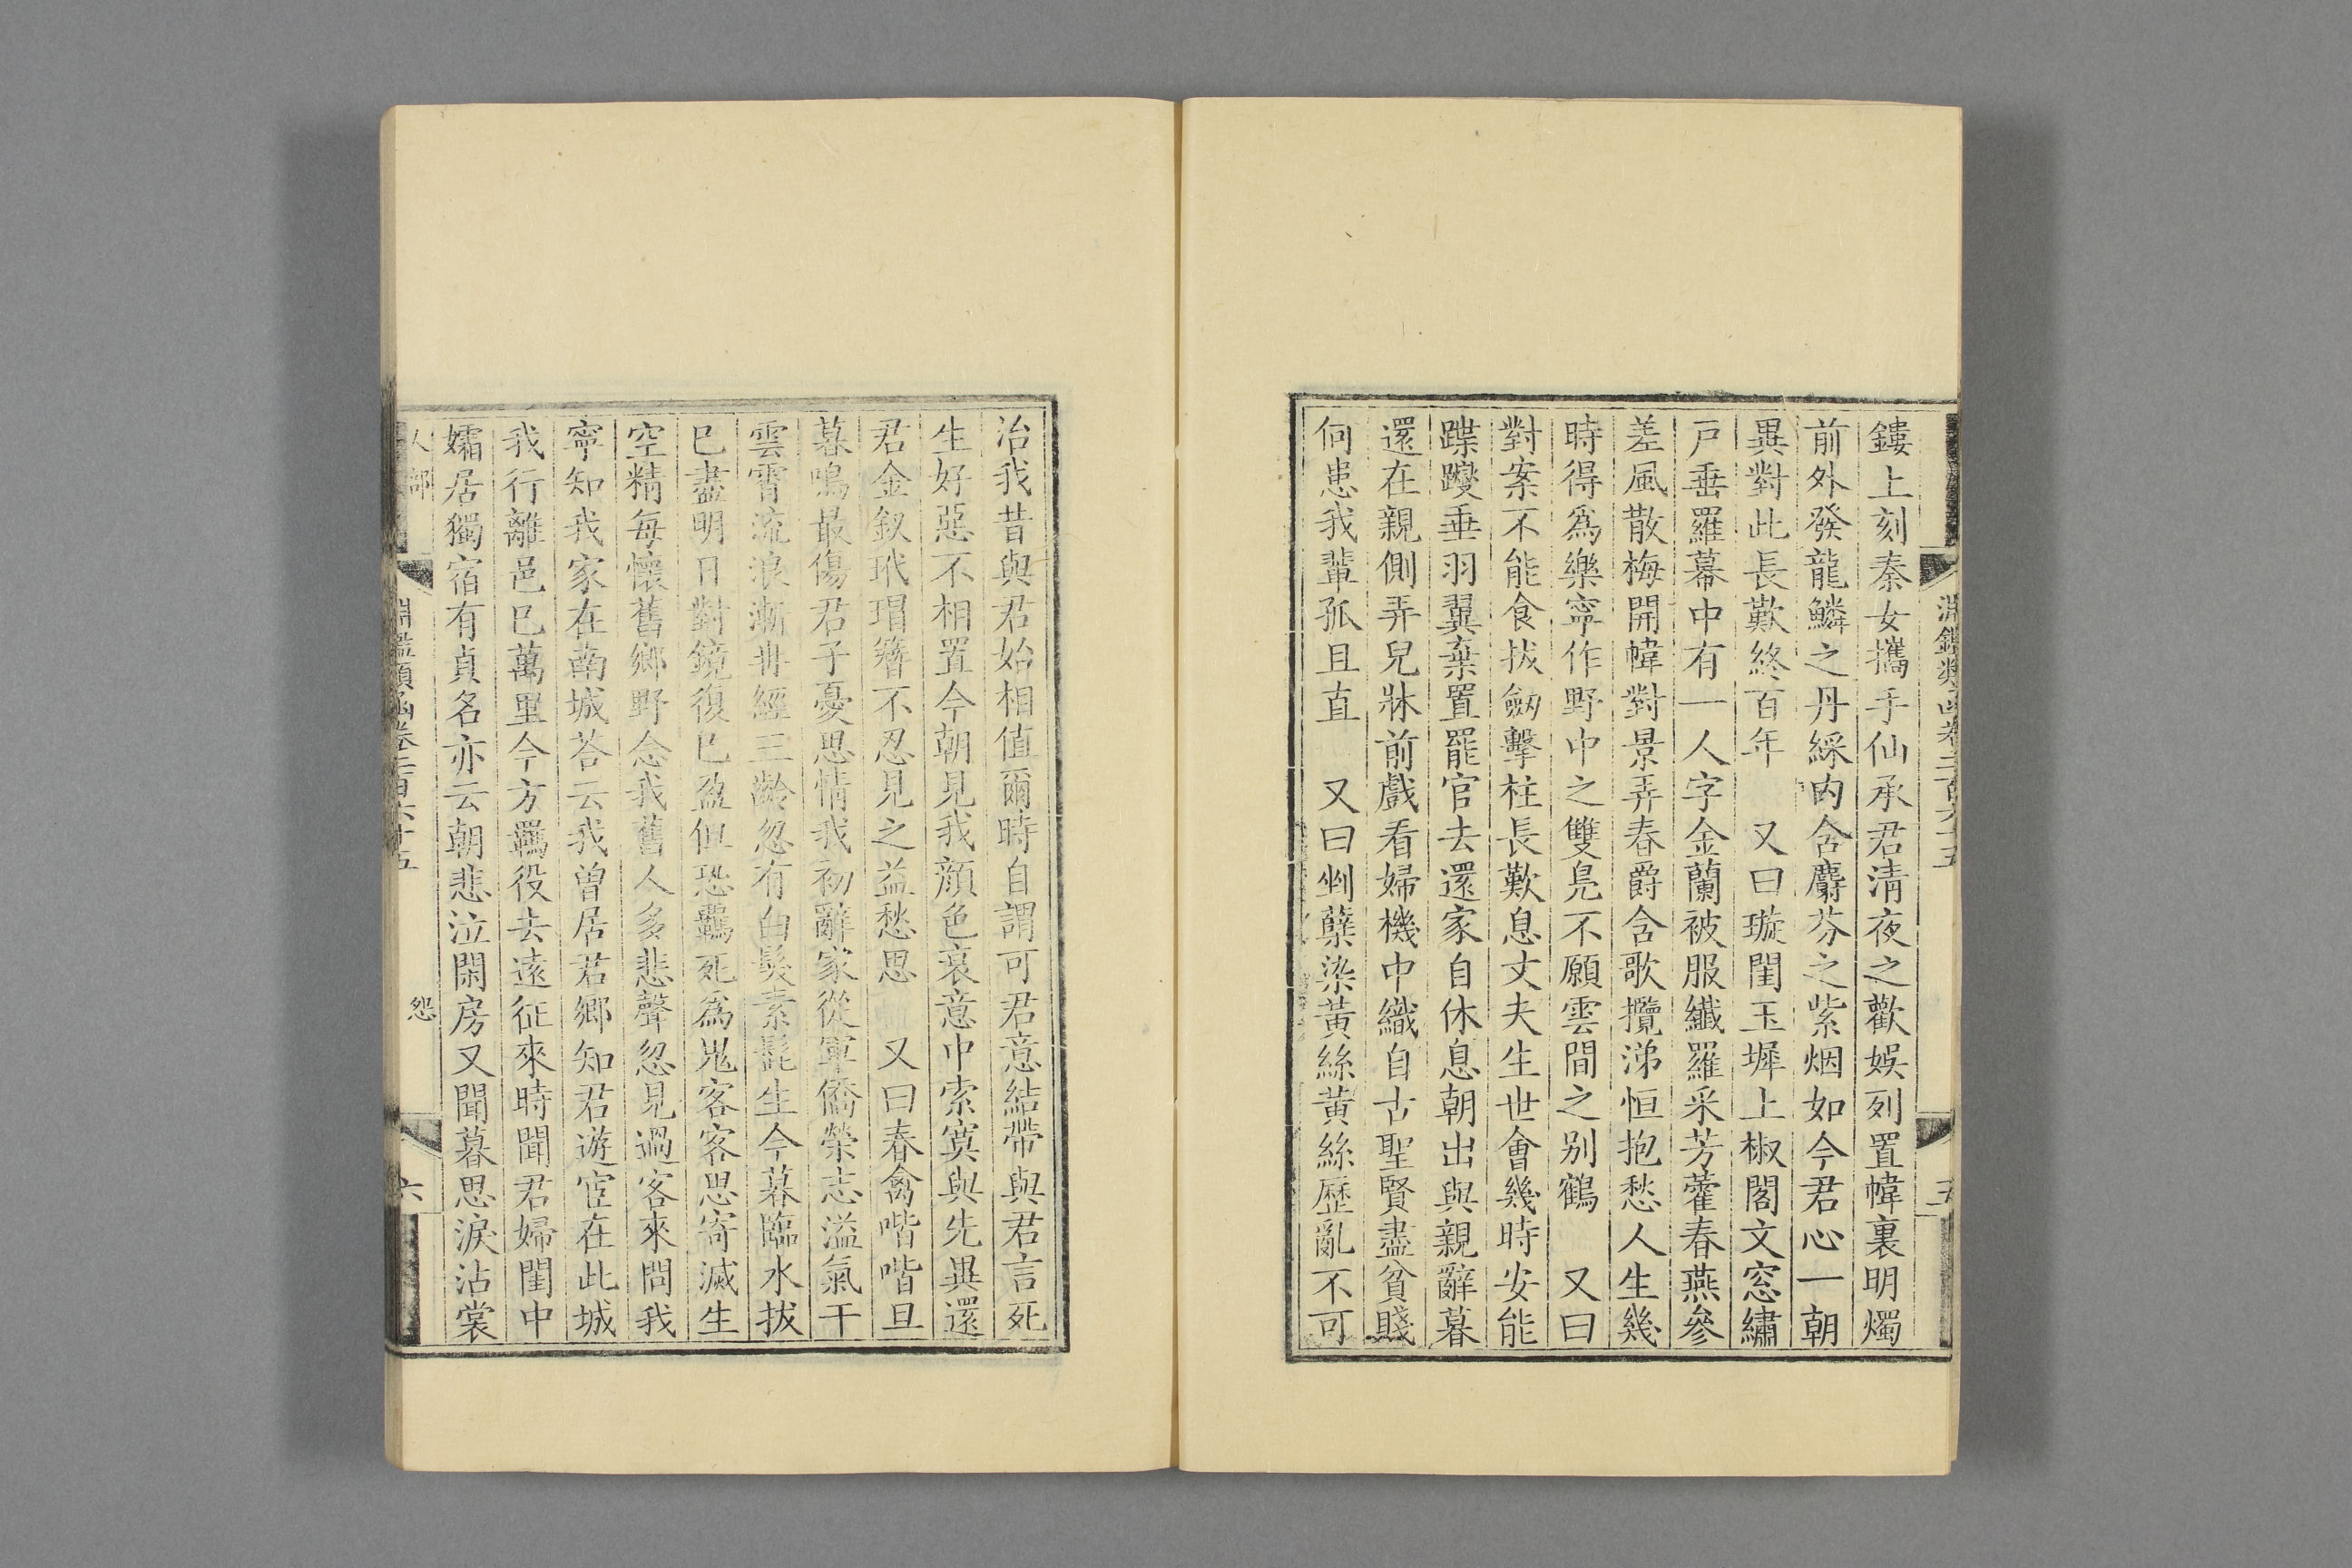 淵鑑類函卷三百六十五
五
鏤上刻秦女攜手仙承君清夜之歡娛列置幃裏明燭
前外發龍鱗之丹綵内含麝芬之紫烟如今君心一朝
異對此長歎終百年　又曰璇閨玉墀上椒閣文窓繡
戸垂羅幕中有一人字金蘭被服纖羅采芳藿春燕參
差風散梅開幃對景弄春爵含歌攬涕恒抱愁人生幾
時得爲樂寧作野中之雙鳧不願雲間之别鶴　又曰
對案不能食拔劒擊柱長歎息丈夫生世會幾時安能
蹀躞垂羽翼棄置罷官去還家自休息朝出與親辭暮
還在親側弄兒牀前戲看婦機中織自古聖賢盡貧賤
何患我輩孤且直　又曰剉蘖染黄絲黄絲歷亂不可
治我昔與君始相值爾時自謂可君意結帶與君言死
生好惡不相置今朝見我顔色衰意中索寞與先異還
君金釵玳瑁簪不忍見之益愁思　又曰春禽喈喈旦
暮鳴最傷君子憂思情我初辭家從軍僑榮志溢氣干
雲霄流浪漸冉經三齡忽有白髮素髭生今暮臨水拔
已盡明日對鏡復已盈但恐羈死爲鬼客客思寄滅生
空精每懷舊鄉野念我舊人多悲聲忽見過客來問我
寧知我家在南城荅云我曾居君鄉知君遊宦在此城
我行離邑已萬里今方羈役去遠征來時聞君婦閨中
孀居獨宿有貞名亦云朝悲泣閑房又聞暮思淚沾裳
人部
淵鑑類函卷三百六十五
怨
六